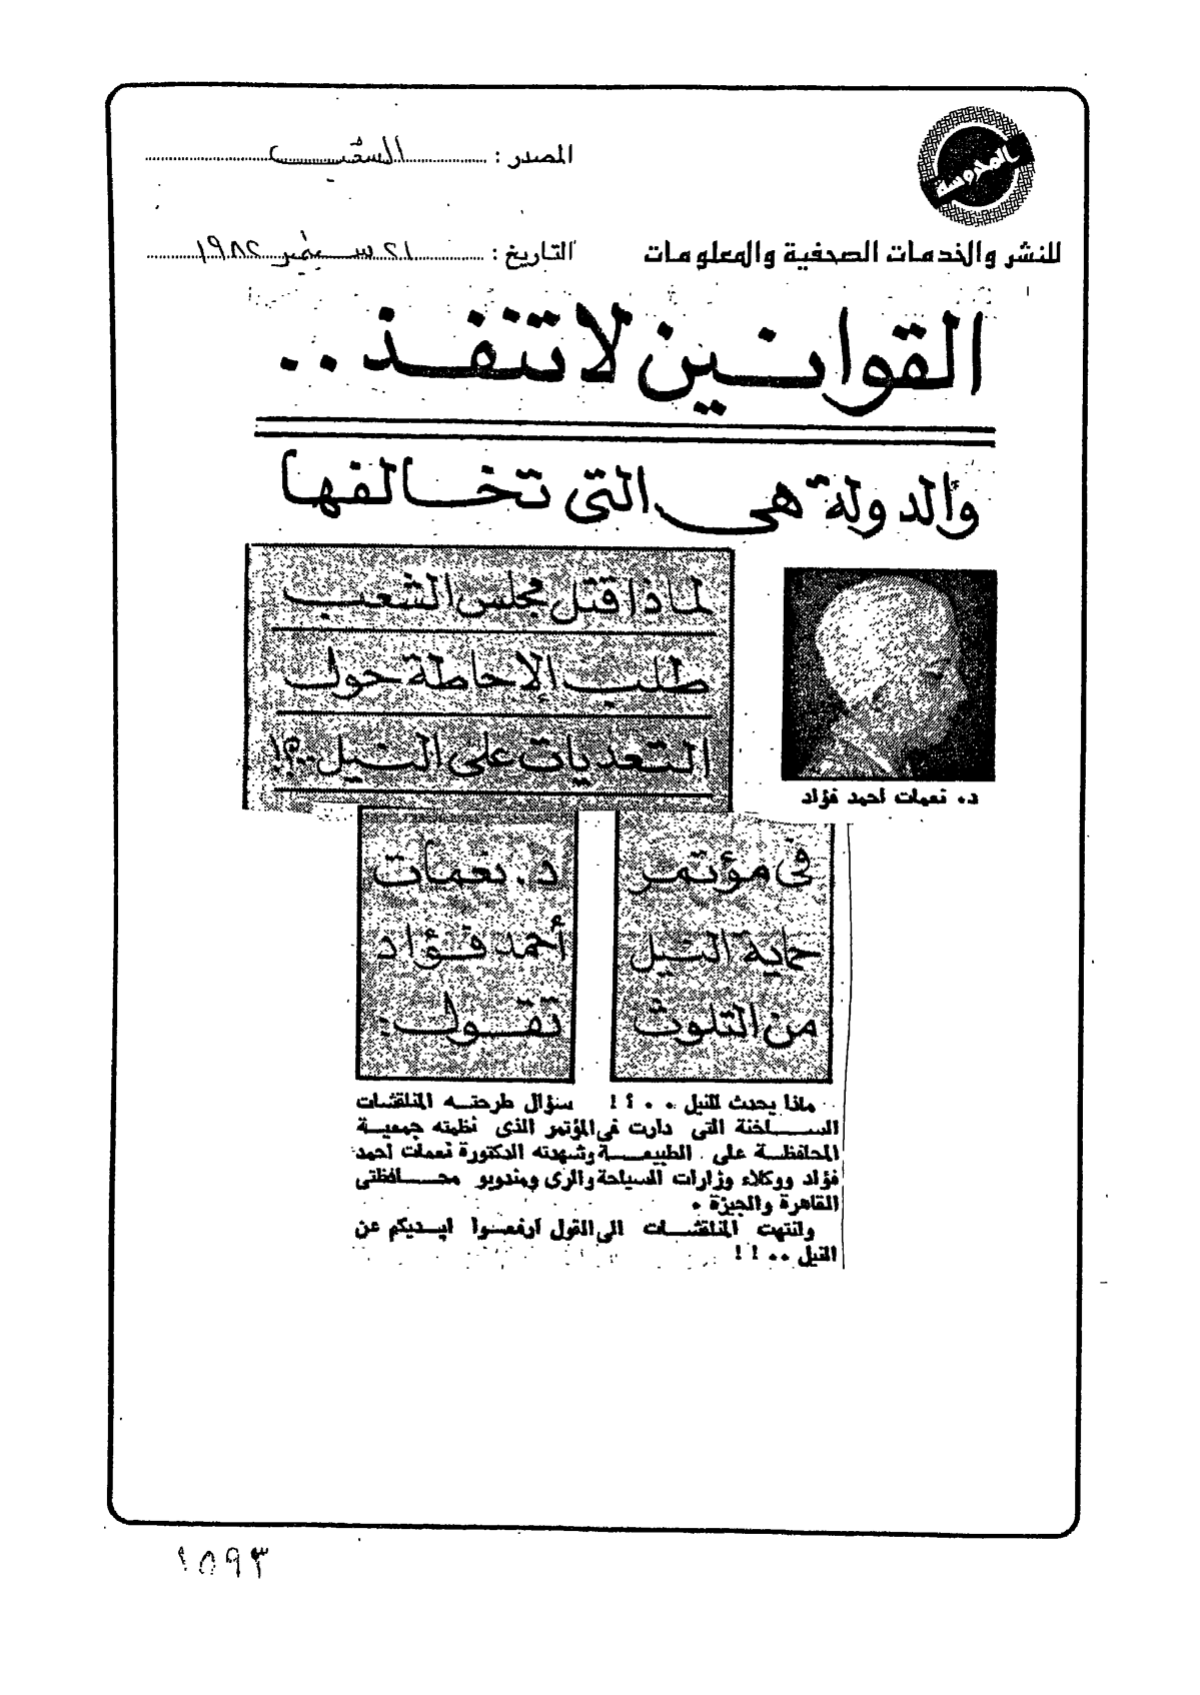 المحروسة
المصدر : الشعب
للنشر والخدمات الصحفية والمعلومات
التاريخ : ٢١ سبتمبر ١٩٨٢
القوانين لا تنفذ ..
والدولة هى التى تخالفها
لماذا قتل مجلس الشعب
طلب الإحاطة حول
التعديات على النيل ..؟!
د. نعمات أحمد فؤاد
فى مؤتمر
حماية النيل
من التلوث
د. نعمات
أحمد فؤاد
تقول :
ماذا يحدث للنيل ..؟! سؤال طرحته المناقشات
الساخنة التى دارت فى المؤتمر الذى نظمته جمعية
المحافظة على الطبيعة وشهدته الدكتورة نعمات أحمد
فؤاد ووكلاء وزارات السياحة والرى ومندوبو محافظتى
القاهرة والجيزة .
وانتهت المناقشات الى القول ارفعوا ايديكم عن
النيل ..!!
١٥٩٣